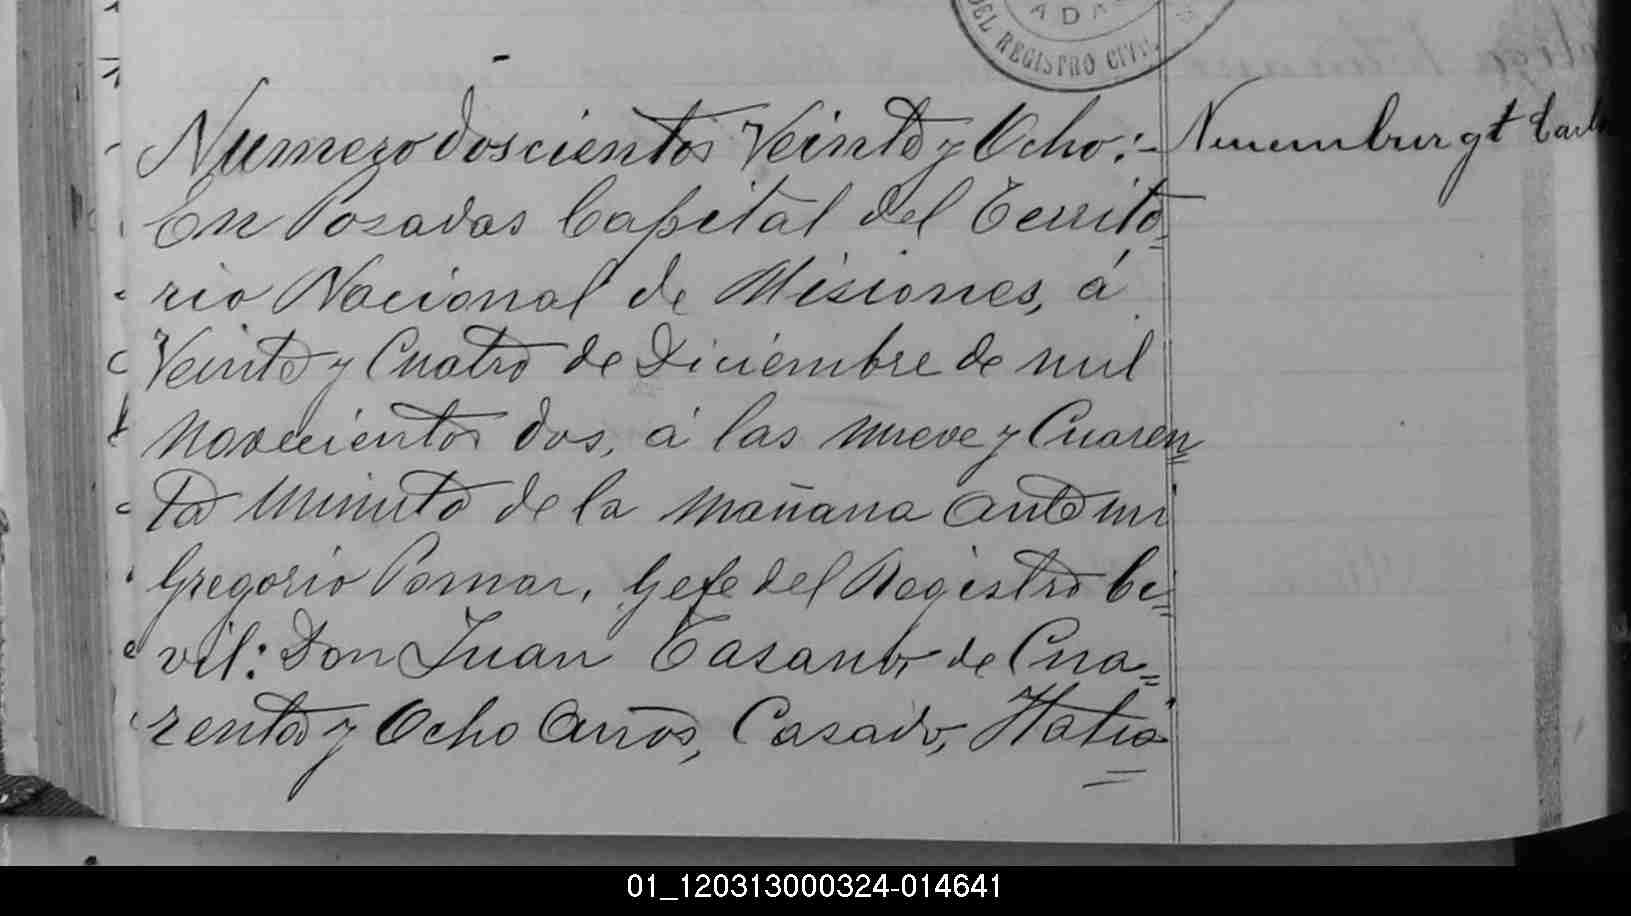 DEL REGISTRO CIVIL
Numero doscientos Veinte y Ocho:- Neuemburgt Carlo
En Posadas Capital del Territo=
rio Nacional de Misiones, á
Veinte y Cuatro de Diciembre de mil
novecientos dos, á las nueve y Cuaren=
ta minuto de la mañana ante mi
Gregorio Pomar, Gefe del Registro Ci=
vil: Don Juan Tasano, de Cua=
renta y Ocho años, Casado, Italia=
01_120313000324-014641